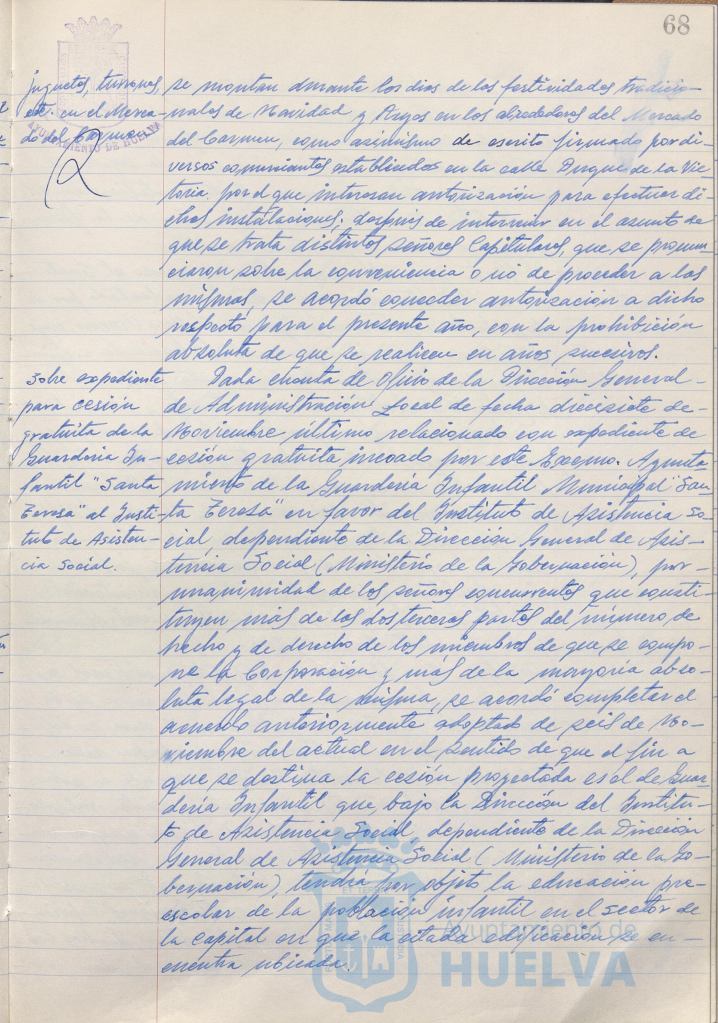 68
juguetes, turrones,
etc. en el Merca-
do del Carmen.
AYUNTAMIENTO DE HUELVA
se montan durante los dias de las festividades tradicio-
nales de Navidad y Reyes en los alrededores del Mercado
del Carmen, como asimismo de escrito firmado por di-
versos comerciantes establecidos en la calle Duque de la Vic-
toria. por el que interesan autorización para efectuar di-
chas instalaciones, después de intervenir en el asunto de
que se trata distintos señores Capitulares, que se pronun-
ciaron sobre la conveniencia o nó de proceder a las
mismas, se acordó conceder autorización a dicho
respecto para el presente año, con la prohibición
absoluta de que se realicen en años sucesivos.
Sobre expediente
para cesión
gratuita de la
Guarderia In-
fantil "Santa
Teresa" al Insti-
tuto de Asisten-
cia Social.
Dada cuenta de oficio de la Dirección General-
de Administración Local de fecha diecisiete de-
Noviembre último relacionado con expediente de
cesión gratuita incoado por este Excmo. Ayunta
miento de la Guardería Infantil Municipal "San-
ta Teresa" en favor del Instituto de Asistencia So-
cial, dependiente de la Dirección General de Asis-
tencia Social (Ministerio de la Gobernación), por-
unanimidad de los señores concurrentes que consti-
tuyen más de las dos terceras partes del número de
hecho y de derecho de los miembros de que se compo-
ne la Corporación y más de la mayoría abso-
luta legal de la misma, se acordó completar el
acuerdo anteriormente adoptado de seis de No-
viembre del actual en el sentido de que el fin a
que se destina la cesión proyectada es el de Guar-
dería Infantil que bajo la Dirección del Institu-
to de Asistencia Social, dependiente de la Dirección
General de Asistencia Social (Ministerio de la Go-
bernación), tendrá por objeto la educación pre-
escolar de la población infantil en el sector de
la capital en que la citada edificación se en-
cuentra ubicada.
Ayuntamiento de
HUELVA